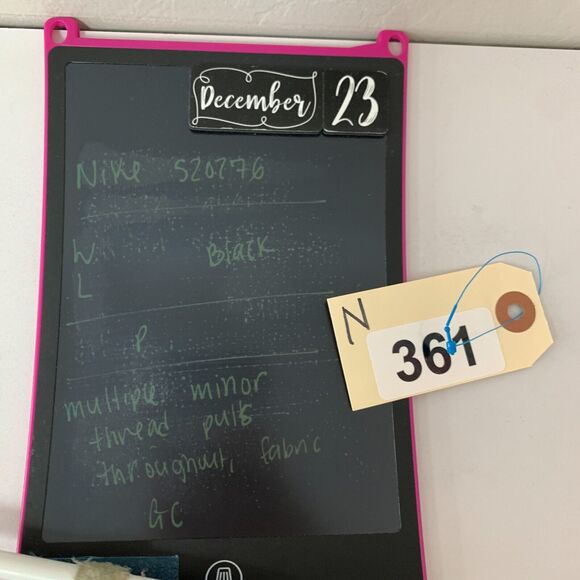 December 23
Nike 520276
W Black
L
P
multiple minor
thread pulls
throughout, fabric
GC
N
361